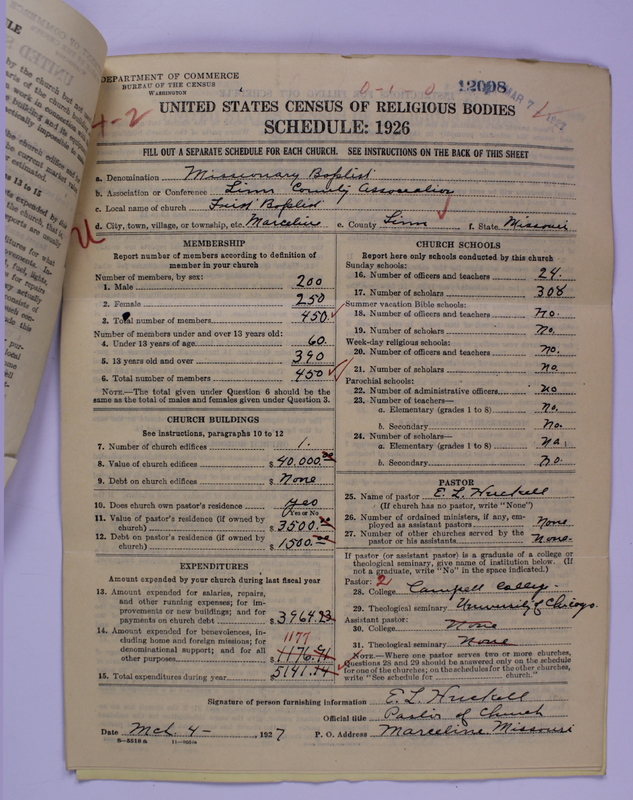 DEPARTMENT OF COMMERCE
BUREAU OF THE CENSUS
WASHINGTON
0-1-0
12098
MAR 7
4-2
UNITED STATES CENSUS OF RELIGIOUS BODIES
SCHEDULE: 1926
FILL OUT A SEPARATE SCHEDULE FOR EACH CHURCH. SEE INSTRUCTIONS ON THE BACK OF THIS SHEET
a. Denomination Missionary Baptist
b. Association or Conference Linn County Association
c. Local name of church First Baptist
d. City, town, village, or township, etc. Marceline e. County Linn f. State Missouri
MEMBERSHIP
Report number of members according to definition of
member in your church
Number of members, by sex:
1. Male 200
2. Female 250
3. Total number of members 450
Number of members under and over 13 years old:
4. Under 13 years of age 60
5. 13 years old and over 390
6. Total number of members 450
NOTE.—The total given under Question 6 should be
the same as the total of males and females given under Question 3.
CHURCH BUILDINGS
See instructions, paragraphs 10 to 12
7. Number of church edifices 1.
8. Value of church edifices $40,000.00
9. Debt on church edifices $ None
10. Does church own pastor's residence? Yes
(Yes or No)
11. Value of pastor's residence (if owned by
church) $3500.00
12. Debt on pastor's residence (if owned by
church) $1500.00
EXPENDITURES
Amount expended by your church during last fiscal year
13. Amount expended for salaries, repairs,
and other running expenses; for im-
provements or new buildings; and for
payments on church debt $3964.23
14. Amount expended for benevolences, in-
cluding home and foreign missions; for
denominational support; and for all
other purposes 1177
$1176.91
15. Total expenditures during year $5141.14
CHURCH SCHOOLS
Report here only schools conducted by this church
Sunday schools:
16. Number of officers and teachers 24.
17. Number of scholars 308
Summer vacation Bible schools:
18. Number of officers and teachers no.
19. Number of scholars no.
Week-day religious schools:
20. Number of officers and teachers no.
21. Number of scholars no.
Parochial schools:
22. Number of administrative officers no
23. Number of teachers—
a. Elementary (grades 1 to 8) no.
b. Secondary no.
24. Number of scholars—
a. Elementary (grades 1 to 8) no
b. Secondary no.
PASTOR
25. Name of pastor E. L. Huckell
(If church has no pastor, write "None")
26. Number of ordained ministers, if any, em-
ployed as assistant pastors None
27. Number of other churches served by the
pastor or his assistants None.
If pastor (or assistant pastor) is a graduate of a college or
theological seminary, give name of institution below. (If
not a graduate, write "No" in the space indicated.)
Pastor: 2
28. College Campbell Colleg.
29. Theological seminary University of Chicago.
Assistant pastor:
30. College None
31. Theological seminary None
NOTE.—Where one pastor serves two or more churches,
Questions 28 and 29 should be answered only on the schedule
for one of the churches; on the schedules for the other churches,
write "See schedule for church."
Signature of person furnishing information E. L. Huckell
Official title Pastor of Church
Date Mch. 4- , 1927 P. O. Address Marceline Missouri
8-5518a